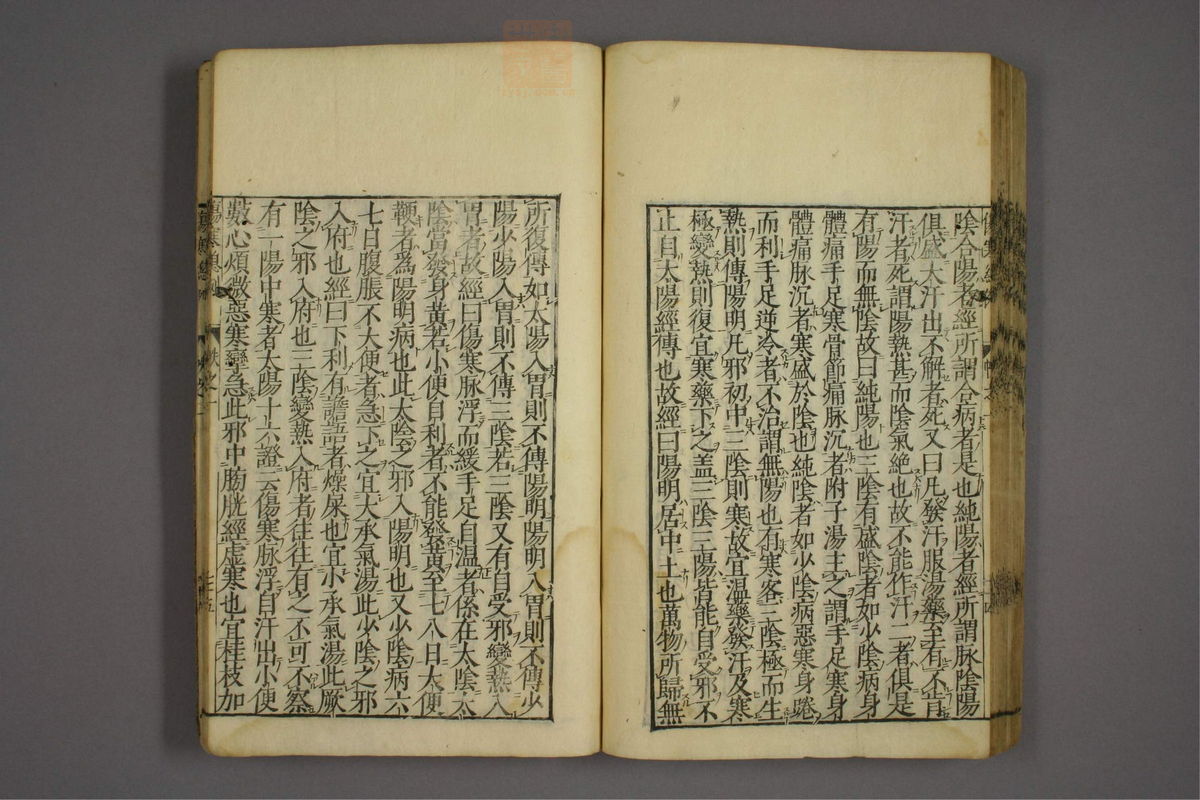 陰合陽者經所謂合病者是也純陽者經所謂脉陰陽
俱盛大汗出不解者死又曰凡發汗服湯藥至有不肯
汗者死謂陽熱甚而陰氣絶也故不能作汗二者俱是
有陽而無陰故曰純陽也三陰有盛陰者如少陰病身
體痛手足寒骨節痛脉沉者附子湯主之謂手足寒身
體痛脉沉者寒盛於陰也純陰者如少陰病惡寒身踡
而利手足逆冷者不治謂無陽也有寒客三陰極而生
熱則傳陽明凡邪初中三陰則寒故宜温藥發汗及寒
極變熱則復宜寒藥下之盖三陰三陽皆能自受邪不
止自太陽經傳也故經曰陽明居中土也萬物所歸無
所復傳如太陽入胃則不傳陽明陽明入胃則不傳少
陽少陽入胃則不傳三陰若三陰又有自受邪變熱入
胃者故經曰傷寒脉浮而緩手足自温者係在太陰太
陰當發身黄若小便自利者不能發黄至七八日大便
鞕者爲陽明病也此太陰之邪入陽明也又少陰病六
七日腹脹不大便者急下之宜大承氣湯此少陰之邪
入府也經曰下利有譫語者燥屎也宜小承氣湯此厥
陰之邪入府也三陰變熱入府者往往有之不可不察
有一陽中寒者太陽十六證云傷寒脉浮自汗出小便
數心煩微惡寒攣急此邪中膀胱經虚寒也宜桂枝加